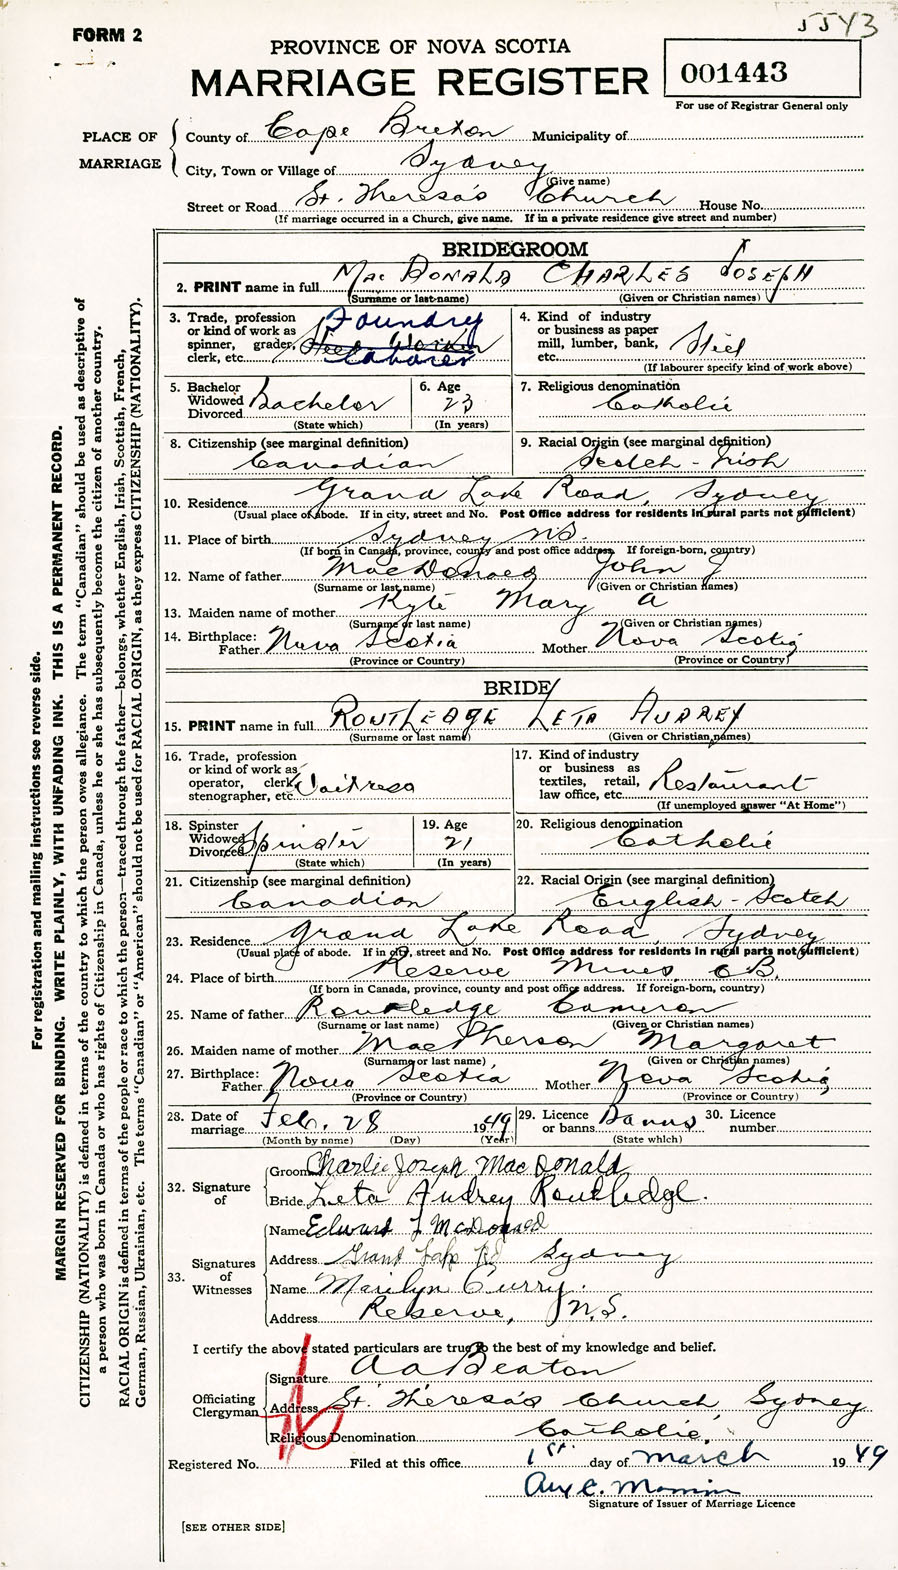 5543
FORM 2
PROVINCE OF NOVA SCOTIA
MARRIAGE REGISTER
001443
For use of Registrar General only
PLACE OF MARRIAGE
County of Cape Breton Municipality of
City, Town or Village of Sydney
(Give name)
Street or Road St. Theresa's Church House No.
(If marriage occurred in a Church, give name. If in a private residence give street and number)
BRIDEGROOM
2. PRINT name in full MacDONALD CHARLES JOSEPH
(Surname or last name) (Given or Christian names)
3. Trade, profession or kind of work as spinner, grader, clerk, etc. Foundry Laborer
4. Kind of industry or business as paper mill, lumber, bank, etc. Steel
(If labourer specify kind of work above)
5. Bachelor Widowed Divorced Bachelor
(State which)
6. Age 23
(In years)
7. Religious denomination Catholic
8. Citizenship (see marginal definition) Canadian
9. Racial Origin (see marginal definition) Scotch-Irish
10. Residence Grand Lake Road, Sydney
(Usual place of abode. If in city, street and No. Post Office address for residents in rural parts not sufficient)
11. Place of birth Sydney N.S.
(If born in Canada, province, county and post office address. If foreign-born, country)
12. Name of father MacDonald John J
(Surname or last name) (Given or Christian names)
13. Maiden name of mother Kyte Mary A
(Surname or last name) (Given or Christian names)
14. Birthplace: Father Nova Scotia Mother Nova Scotia
(Province or Country) (Province or Country)
BRIDE
15. PRINT name in full ROUTLEDGE LETA AUDREY
(Surname or last name) (Given or Christian names)
16. Trade, profession or kind of work as operator, clerk, stenographer, etc. Waitress
17. Kind of industry or business as textiles, retail, law office, etc. Restaurant
(If unemployed answer "At Home")
18. Spinster Widowed Divorced Spinster
(State which)
19. Age 21
(In years)
20. Religious denomination Catholic
21. Citizenship (see marginal definition) Canadian
22. Racial Origin (see marginal definition) English-Scotch
23. Residence Grand Lake Road, Sydney
(Usual place of abode. If in city, street and No. Post Office address for residents in rural parts not sufficient)
24. Place of birth Reserve Mines C.B.
(If born in Canada, province, county and post office address. If foreign-born, country)
25. Name of father Routledge Cameron
(Surname or last name) (Given or Christian names)
26. Maiden name of mother MacPherson Margaret
(Surname or last name) (Given or Christian names)
27. Birthplace: Father Nova Scotia Mother Nova Scotia
(Province or Country) (Province or Country)
28. Date of marriage Feb. 28 1949
(Month by name) (Day) (Year)
29. Licence or banns Banns
(State which)
30. Licence number
32. Signature of
Groom Charlie Joseph MacDonald
Bride Leta Audrey Routledge.
33. Signatures of Witnesses
Name Edward J McDonald
Address Grand Lake Rd Sydney
Name Marilyn Curry.
Address Reserve, N.S.
I certify the above stated particulars are true to the best of my knowledge and belief.
Officiating Clergyman
Signature A A Beaton
Address St. Theresa's Church, Sydney
Religious Denomination Catholic.
Registered No. Filed at this office 1st day of March 1949
Signature of Issuer of Marriage Licence
[SEE OTHER SIDE]
For registration and mailing instructions see reverse side.
MARGIN RESERVED FOR BINDING. WRITE PLAINLY, WITH UNFADING INK. THIS IS A PERMANENT RECORD.
CITIZENSHIP (NATIONALITY) is defined in terms of the country to which the person owes allegiance. The term "Canadian" should be used as descriptive of
a person who was born in Canada or who has rights of Citizenship in Canada, unless he or she has subsequently become the citizen of another country.
RACIAL ORIGIN is defined in terms of the people or race to which the person—traced through the father—belongs, whether English, Irish, Scottish, French,
German, Russian, Ukrainian, etc. The terms "Canadian" or "American" should not be used for RACIAL ORIGIN, as they express CITIZENSHIP (NATIONALITY).